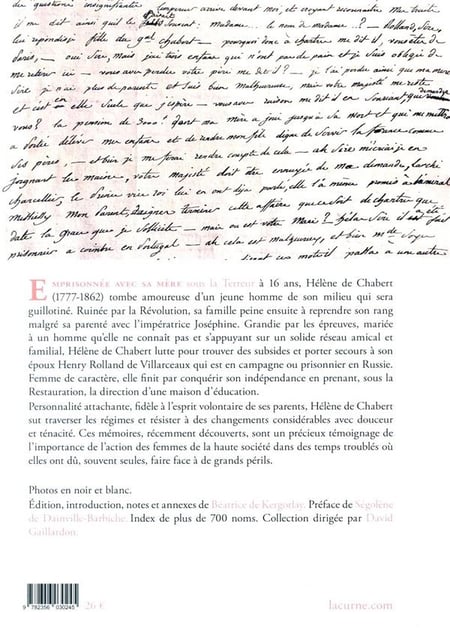 de question insignifiante l'empereur arrive devant moi, et croyant reconnaitre
il me dit ainsi quil le Sursaut: madame... le nom de madame..? — Rolland, Sire,
lui repondis je fille du gal chabert — pourquoi donc à chartre me dit il, vous étier de
Paris, — oui Sire, mais j'ai trois enfans qui n'ont pas de pain et je suis obligée de
me retirer ici — vous avez perdu votre père me dit il? — je l'ai perdu ainsi que ma mere
Sire je n'ai plus de parents et suis bien malheureuse, mais votre majesté me reste
et c'est en elle Seule que j'espère — vous avez raison me dit il en Souriant que demandez
vous? la pension de 3000 f dont ma mère a joui jusqu'à Sa mort et qui me mettra
à portée d'élever mes enfans et de rendre mon fils digne de Servir la france comme
Ses pères, — et bien je me ferai rendre compte de cela — ah Sire m'écriai je en
joignant les mains, votre majesté doit être ennuyée de ma demande, l'archi
chancellier, le prince vice roi lui en ont déja parlé, elle l'a même promis à l'amiral
mon Parent, daignez terminer cette affaire que ce soit de chartre que
date la grace que je Sollicite — mais ou est votre Mari? hélas Sire il a été fait
prisonnier a coimbre en Portugal — ah cela est malheureux, et bien me
disant ces mots il passa à une autre
EMPRISONNÉE AVEC SA MÈRE sous la Terreur à 16 ans, Hélène de Chabert
(1777-1862) tombe amoureuse d'un jeune homme de son milieu qui sera
guillotiné. Ruinée par la Révolution, sa famille peine ensuite à reprendre son rang
malgré sa parenté avec l'impératrice Joséphine. Grandie par les épreuves, mariée
à un homme qu'elle ne connaît pas et s'appuyant sur un solide réseau amical et
familial, Hélène de Chabert lutte pour trouver des subsides et porter secours à son
époux Henry Rolland de Villarceaux qui est en campagne ou prisonnier en Russie.
Femme de caractère, elle finit par conquérir son indépendance en prenant, sous la
Restauration, la direction d'une maison d'éducation.
Personnalité attachante, fidèle à l'esprit volontaire de ses parents, Hélène de Chabert
sut traverser les régimes et résister à des changements considérables avec douceur
et ténacité. Ces mémoires, récemment découverts, sont un précieux témoignage de
l'importance de l'action des femmes de la haute société dans des temps troublés où
elles ont dû, souvent seules, faire face à de grands périls.
Photos en noir et blanc.
Édition, introduction, notes et annexes de Béatrice de Kergorlay. Préface de Ségolène
de Dainville-Barbiche. Index de plus de 700 noms. Collection dirigée par David
Gaillardon.
9 782356 030245
26 €
lacurne.com